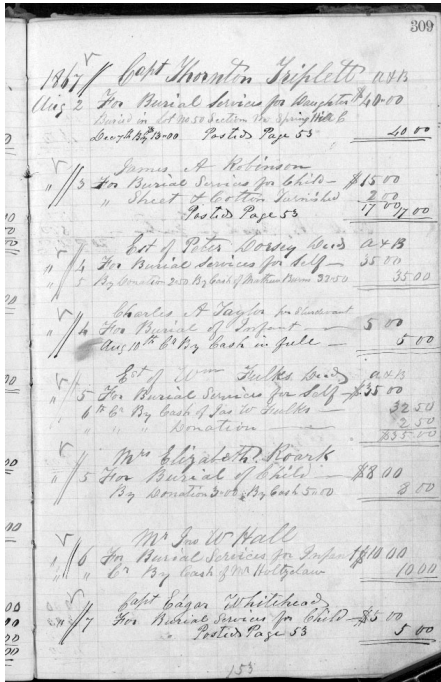 309
1867 Capt Thornton Triplett A & B
Aug 2 For Burial Services for Daughter $40-00
Buried in Lot No 50 Section Spring Hill C
Dec 7th By 13-00 Posted Page 53 40 00
James A Robinson
" 3 For Burial Services for Child – $15 00
" Sheet & Cotton furnished 2 00
Posted Page 53 17 00 17 00
Est of Peter Dorsey Decd A & B
" 4 For Burial Services for Self – 35 00
" 5 By Donation 2-50 By Cash of 32-50 35 00
Charles A Taylor
" 4 For Burial of Infant – 5 00
Aug 10th Cr By Cash in full – 5 00
Est of Wm Fulks Decd A & B
" 5 For Burial Services for Self – $35 00
6th Cr By Cash of Jas W Fulks – 32 50
" " " Donation – 2 50
$35-00
Mrs Elizabeth Roark
" 5 For Burial of Child – $8 00
By Donation 3-00 By Cash 5-00 8 00
Mr Jas W Hall
" 6 For Burial Services for Infant $10 00
" Cr By Cash of Mr Holtzclaw 10 00
Capt Edgar Whitehead
" 7 For Burial Services for Child – $5 00
Posted Page 53 5 00
153